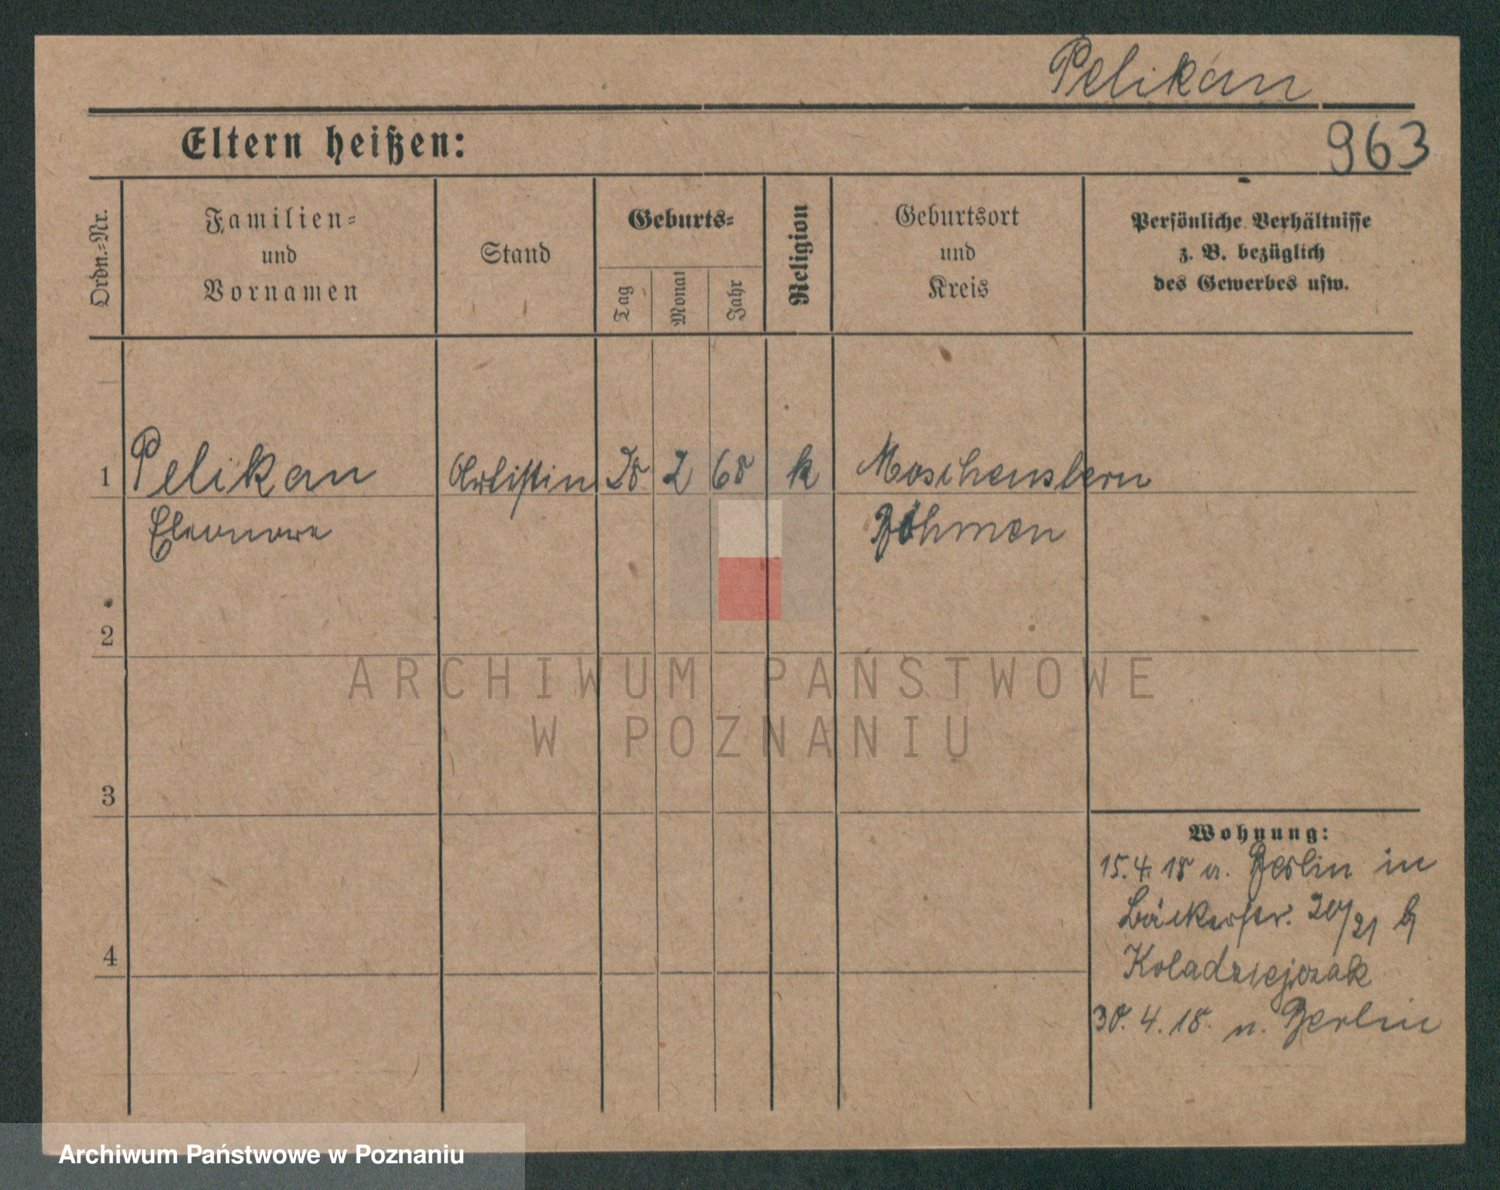 Pelikan
Eltern heißen:
963
Ordn.=Nr.
Familien=
und
Vornamen
Stand
Geburts=
Tag
Monat
Jahr
Religion
Geburtsort
und
Kreis
Persönliche Verhältnisse
z. B. bezüglich
des Gewerbes usw.
1 Pelikan Artistin 28 2 68 k Moschenstern
Eleonore Böhmen
2
ARCHIWUM PAŃSTWOWE
W POZNANIU
3
Wohnung:
15.4.18 v. Berlin in
Bäckerstr. 20/21 b
4
Koladziejczak
30.4.18. n. Berlin
Archiwum Państwowe w Poznaniu